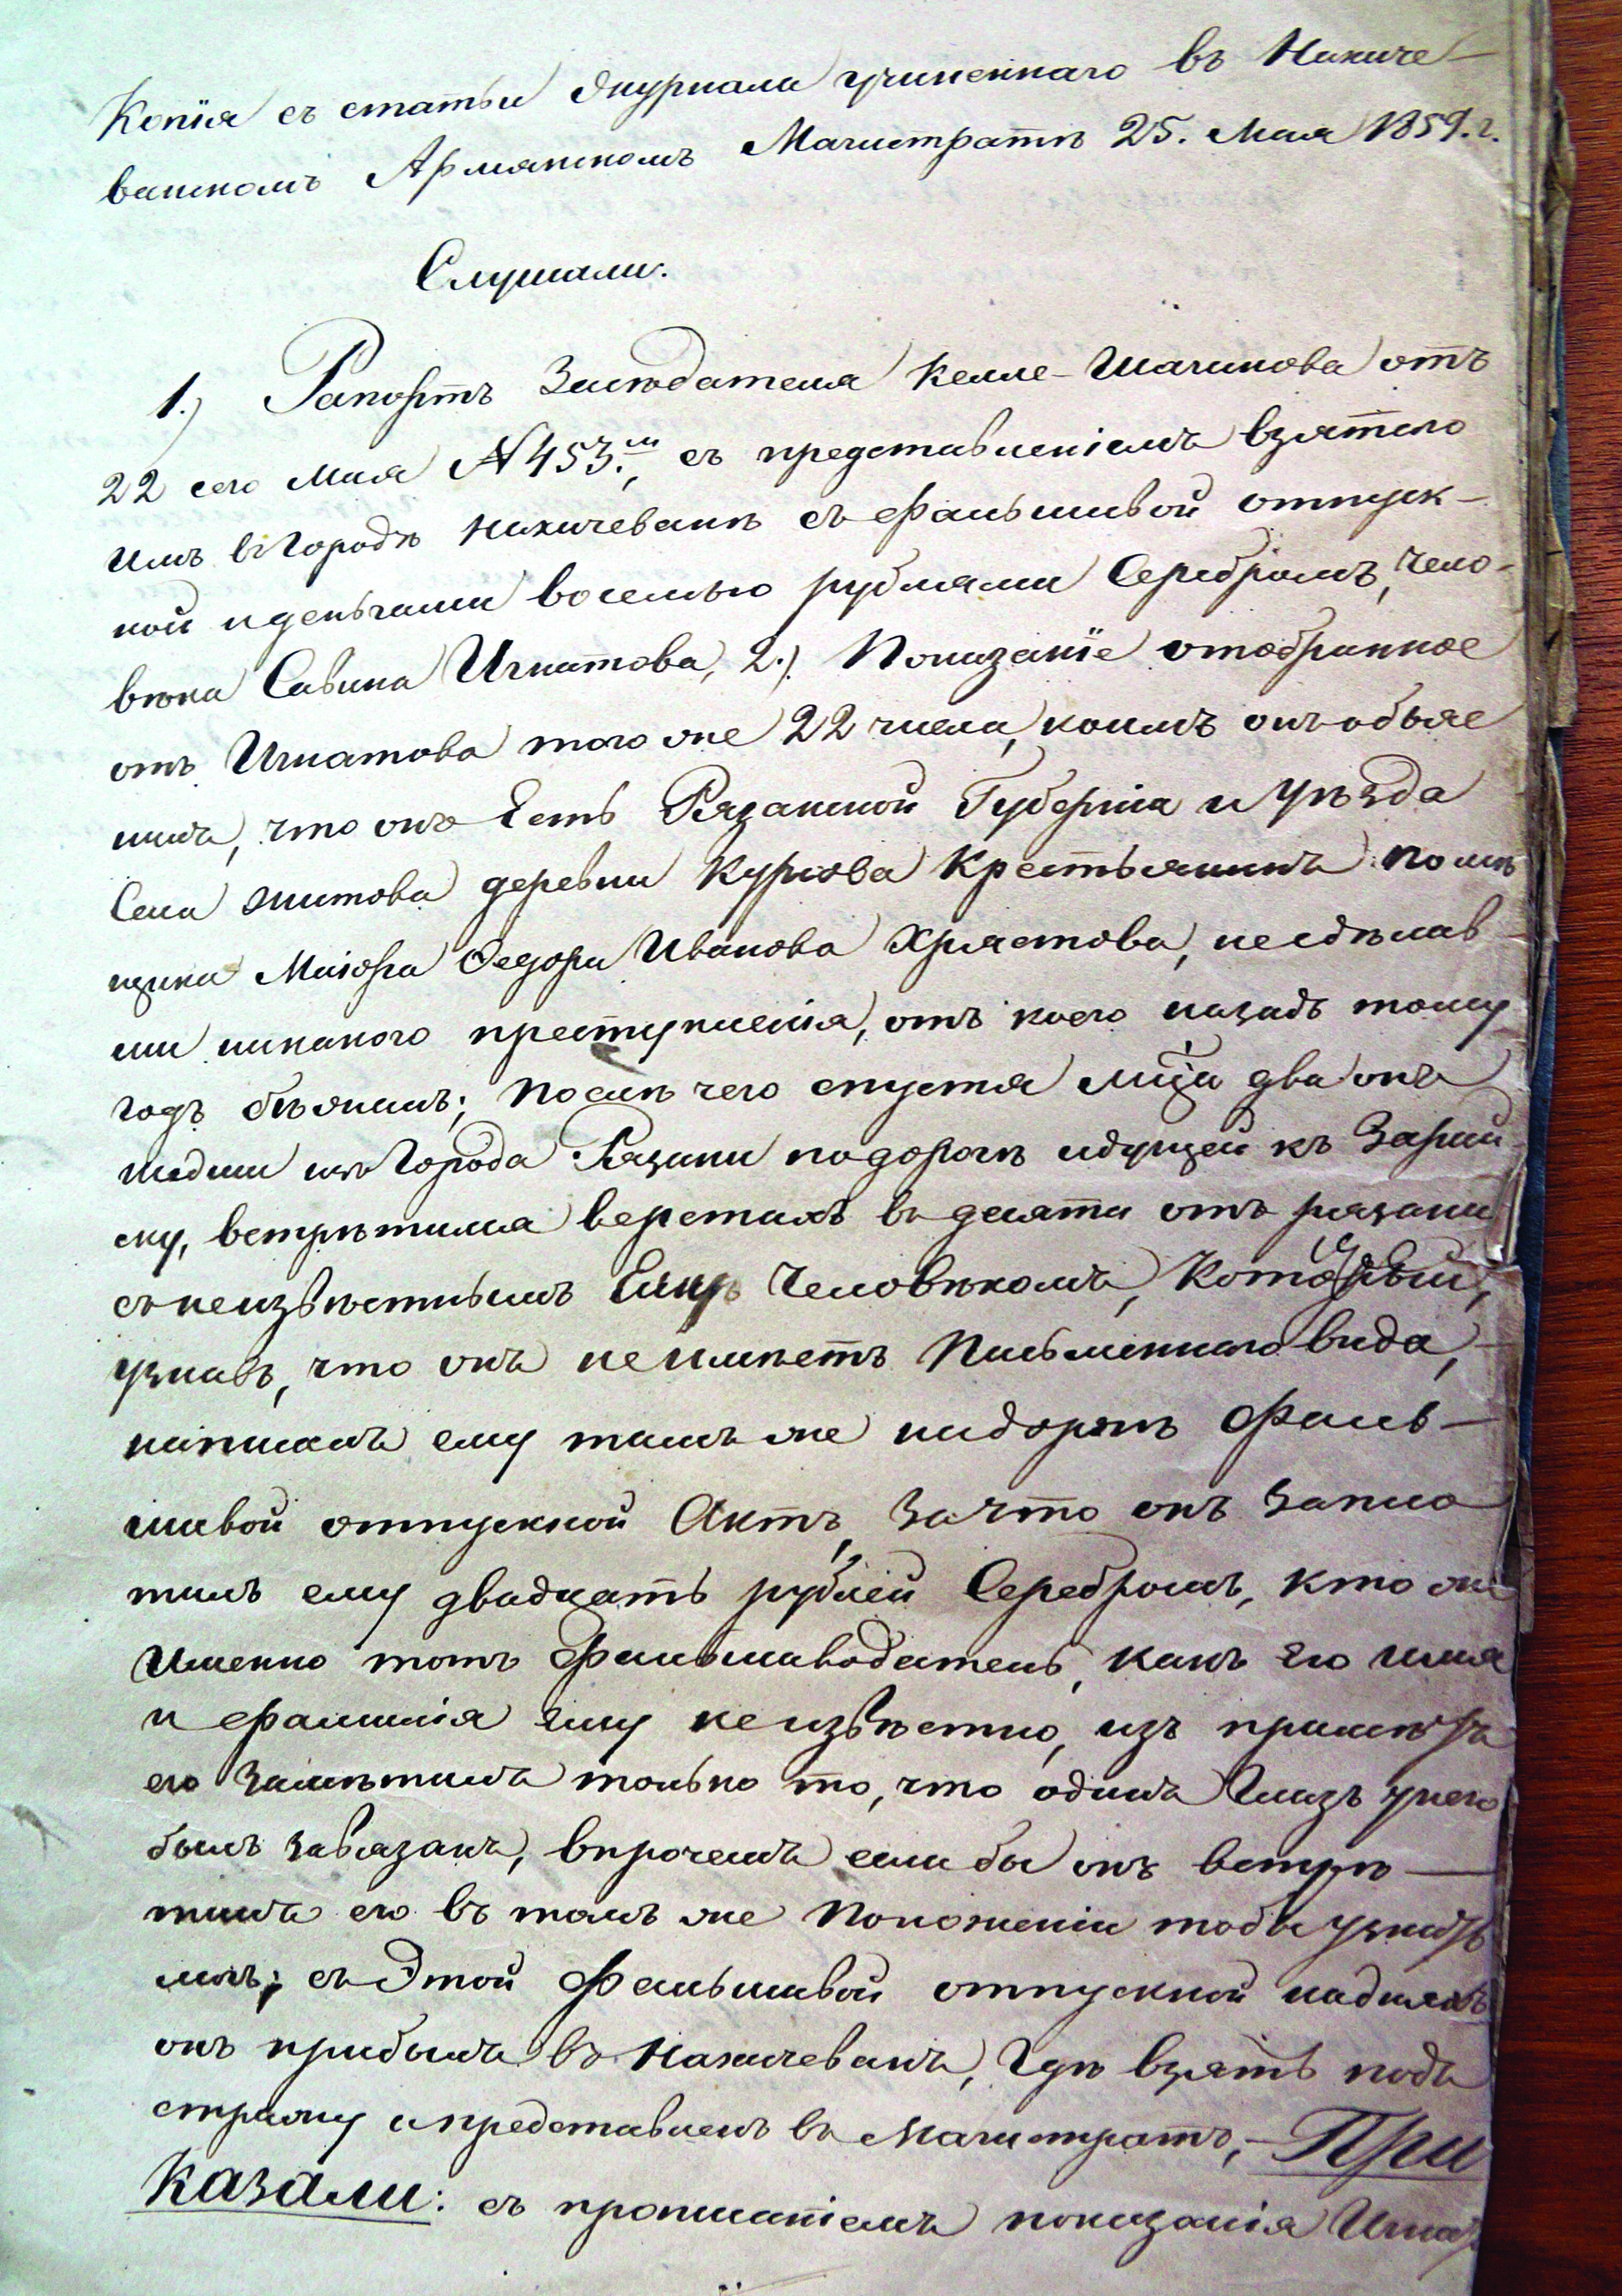 Копія съ статьи журнала учиненнаго въ Нахиче-
ванскомъ Армянскомъ Магистратѣ 25. Мая 1859. г.
Слушали:
1.) Рапортъ Засѣдателя Келле-Шагинова отъ
22 сего Мая № 453.м, съ представленіемъ взятаго
имъ въ Городѣ Нахичеванѣ съ фальшивой отпуск-
ной и деньгами восемью рублями Серебромъ, чело-
вѣка Савина Игнатова, 2.) Показаніе отобранное
отъ Игнатова того же 22 числа, коимъ онъ обяс
нилъ, что онъ Есть Рязанской Губерніи и Уѣзда
Села Житова деревни Куркова Крестьянинъ помѣ
щика Маіора Федора Иванова Хрястова, несдѣлав-
ши никакого преступленія, отъ коего назадъ тому
годъ бѣжалъ; После чего спустя мца два онъ
шедши изъ Города Рязани по дорогѣ идущей къ Зарай-
ску, встрѣтился верстахъ въ десяти отъ рязани
съ неизвѣстнымъ Ему Человѣкомъ, Который,
узнавъ, что онъ неимѣетъ Письменнаго вида,
написалъ ему тамъ же надорогѣ Фаль-
шивой отпускной Актъ, За что онъ запла
тилъ ему двадцать рублей Серебромъ, кто же
Именно тотъ Фальшиводатель, какъ Его имя
и фамилія Ему неизвѣстно, изъ примѣтъ
его замѣтилъ только то, что одинъ Глазъ унего
былъ завязанъ, впрочемъ если бы онъ встрѣ-
тилъ его въ томъ же Положеніи тобы узнать
могъ; съ Этой Фальшивой отпускной надняхъ
онъ прибылъ въ Нахичевань, Гдѣ взятъ подъ
стражу и представленъ въ Магистратъ,- При
казали: съ прописаніемъ показанія Игна